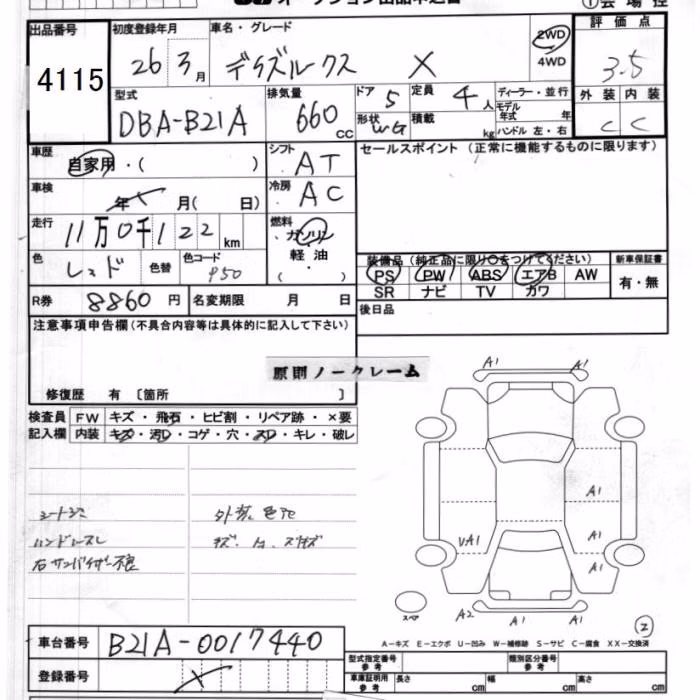 出品番号 初度登録年月 車名・グレード 評価点
4115 26 3月 デイズルークス X 2WD 4WD 3.5
型式 排気量 ドア 5 定員 4人 ディーラー・並行 外装 内装
DBA-B21A 660 CC 形状 WG 積載 kg モデル年式 年 ハンドル 左・右 C C
車歴 自家用・( ) シフト AT セールスポイント (正常に機能するものに限ります)
車検 年 月( 日) 冷房 AC
走行 11万0千122km 燃料 ・ガソリン
色 レッド 色替 色コード P50 軽油 ・( ) 装備品 (純正品に限り○をつけてください) 新車保証書
PS PW ABS エアB AW 有・無
R券 8860円 名変期限 月 日 SR ナビ TV カワ
注意事項申告欄(不具合内容等は具体的に記入して下さい) 後日品
原則ノークレーム
修復歴 有 〔箇所 〕
検査員 FW キズ・飛石・ヒビ割・リペア跡・×要
記入欄 内装 キズ・汚り・コゲ・穴・スレ・キレ・破レ
A1 A1
シートシミ 外装、色アセ A1
ハンドルスレ キズ・凹、スリキズ VA1 A1
右サンバイザー不良 A1
スペア A2 A1 A1
2
車台番号 B21A-0017440 A-キズ E-エクボ U-凹み W-補修跡 S-サビ C-腐食 XX-交換済
登録番号 型式指定番号 参考 類別区分番号 参考
車庫証明用 参考 長さ cm 幅 cm 高さ cm